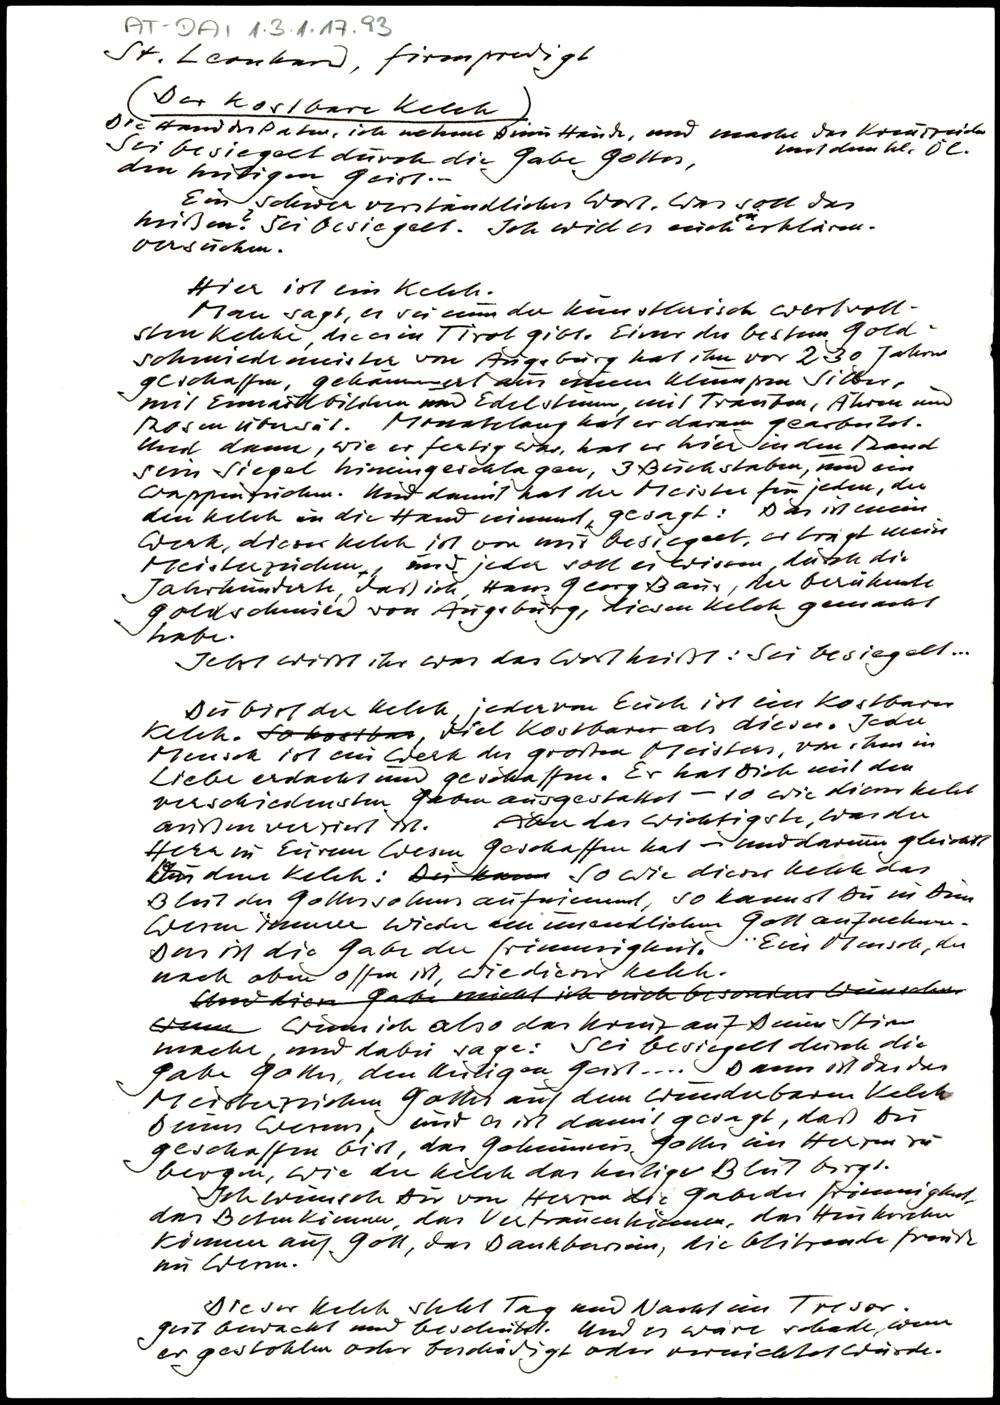 AT-DAI 1.3.1.17.93
St. Leonhard, Firmpredigt
(Der kostbare Kelch)
Die Hand des Paten, ich nehme Deine Hände, und mache das Kreuzzeichen
mit dem hl. Öl.
Sei besiegelt durch die Gabe Gottes,
den heiligen Geist...
Ein schwer verständliches Wort. Was soll das
heißen? Sei besiegelt. Ich will es euch zu erklären.
versuchen.
Hier ist ein Kelch.
Man sagt, es sei einer der künstlerisch wertvoll-
sten Kelche, die es in Tirol gibt. Einer der besten Gold-
schmiedemeister von Augsburg hat ihn vor 230 Jahren
geschaffen, gehämmert aus einem Klumpen Silber,
mit Emailbildern und Edelsteinen, mit Trauben, Ähren und
Rosen übersät. Monatelang hat er daran gearbeitet.
Und dann, wie er fertig war, hat er hier in den Rand
sein Siegel hineingeschlagen, 3 Buchstaben, und ein
Wappenzeichen. Und damit hat der Meister für jeden, der
den Kelch in die Hand nimmt, gesagt: Das ist mein
Werk, dieser Kelch ist von mir besiegelt, er trägt mein
Meisterzeichen, und jeder soll es wissen, durch die
Jahrhunderte, daß ich, Hans Georg Baur, der berühmte
Goldschmied von Augsburg, diesen Kelch gemacht
habe.
Jetzt wißt ihr was das Wort heißt: Sei besiegelt...
Du bist der Kelch, jeder von Euch ist ein kostbarer
Kelch. So kostbar, viel kostbarer als dieser. Jeder
Mensch ist ein Werk des großen Meisters, von ihm in
Liebe erdacht und geschaffen. Er hat Dich mit den
verschiedensten Gaben ausgestattet – so wie dieser Kelch
außen verziert ist. Aber das Wichtigste, was der
Herr in Eurem Wesen geschaffen hat – und darum gleicht
dem Kelch: Du kann So wie dieser Kelch das
Blut des Gottessohnes aufnimmt, so kannst Du in Dein
Wesen immer wieder den unendlichen Gott aufnehmen.
Das ist die Gabe der Frömmigkeit. Ein Mensch, der
nach oben offen ist, wie dieser Kelch.
Und diese Gabe möcht ich euch besonders wünschen
wenn Wenn ich also das Kreuz auf Deine Stirn
mache, und dabei sage: Sei besiegelt durch die
Gabe Gottes, den Heiligen Geist.... Dann ist das das
Meisterzeichen Gottes auf dem wunderbaren Kelch
Deines Wesens, und es ist damit gesagt, daß Du
geschaffen bist, das Geheimnis Gottes im Herzen zu
bergen, wie der Kelch das heilige Blut birgt.
Ich wünsch Dir von Herzen die Gabe der Frömmigkeit,
das Betenkönnen, das Vertrauenkönnen, das Hinhorchen
können auf Gott, das Dankbarsein, die blitzende Freude
im Wesen.
Dieser Kelch steht Tag und Nacht im Tresor.
gut bewacht und beschützt. Und es wäre schade, wenn
er gestohlen oder beschädigt oder vernichtet würde.